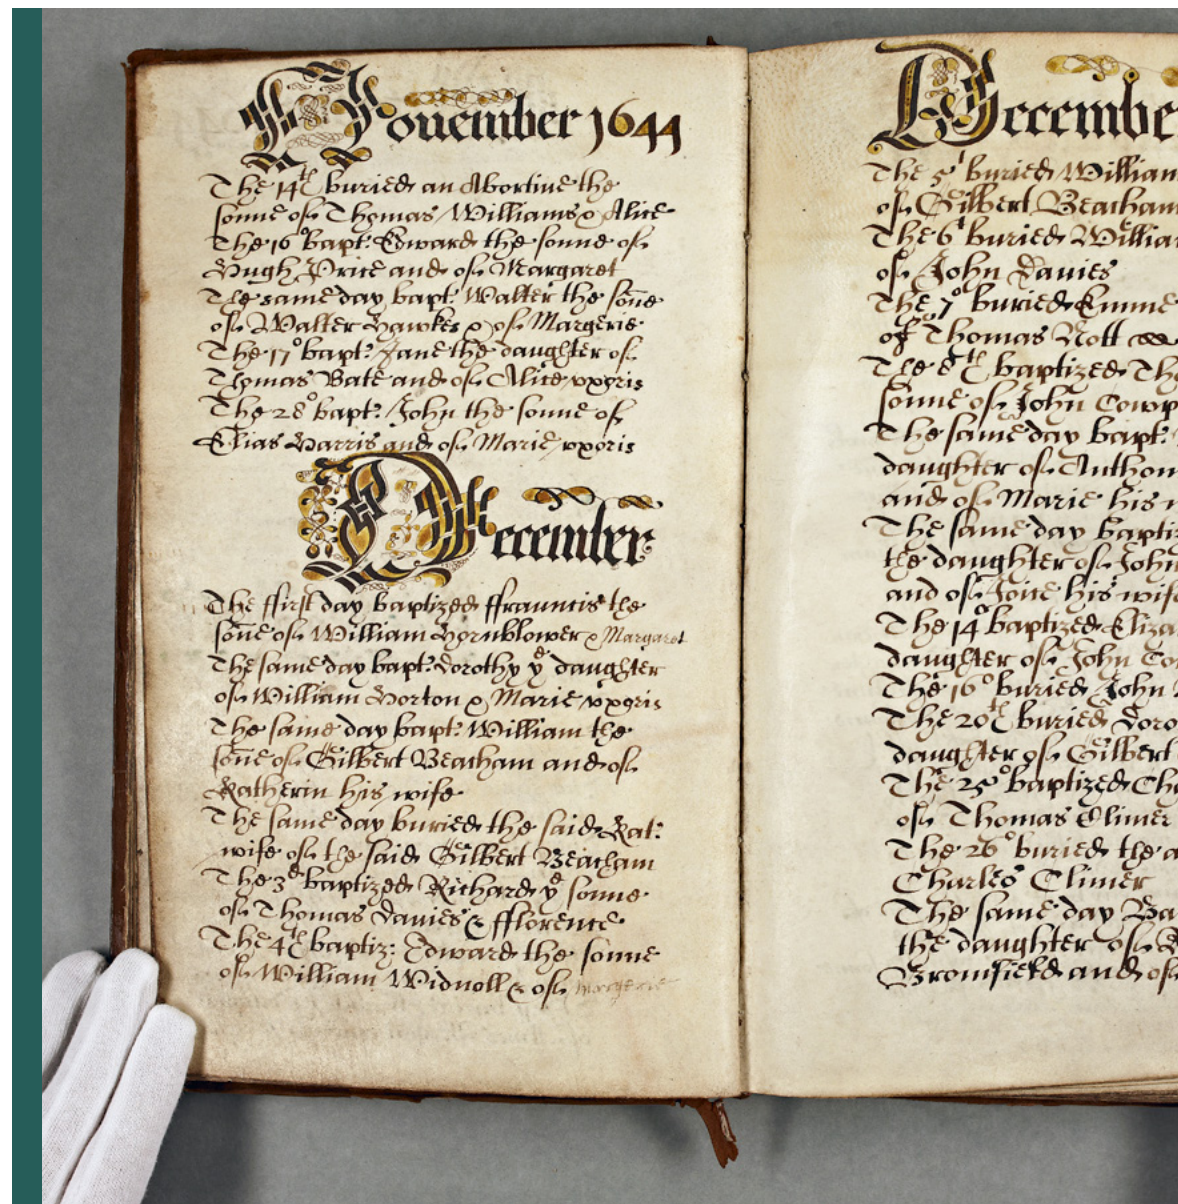 November 1644
The 14th buried an Abortive the
sonne of Thomas Williams & Alice
The 16° bapt: Edward the sonne of
Hugh Price and of Margaret
The same day bapt: Walter the soñe
of Walter Hawkes & of Margerie
The 17° bapt: Jane the daughter of
Thomas Bate and of Alice uxoris
The 28° bapt: John the sonne of
Elias Harris and of Marie uxoris
December
The ffirst day baptized ffrauncis the
soñe of William Hornblower & Margaret
The same day bapt: Dorothy yᵉ daughter
of William Horton & Marie uxoris
The same day bapt: William the
soñe of Gilbert Beacham and of
Katherin his wife
The same day buried the said Kat:
wife of the said Gilbert Beacham
The 3ᵈ baptized Richard yᵉ sonne
of Thomas Davies & fflorence
The 4th baptiz: Edward the sonne
of William Widnoll & of Margerie
December
The 5ᵗ buried William
of Gilbert Beacham
The 6ᵗ buried Willia
of John Davies
The 7° buried Emme
of Thomas Nott
The 8th baptized Th
sonne of John Cowp
The same day bapt:
daughter of Anthon
and of Marie his
The same day bapti
the daughter of John
and of Jone his wife
The 14° baptized Eliza
daughter of John Co
The 16° buried John
The 20th buried Doro
daughter of Gilbert
The 25° baptized Ch
of Thomas Climer
The 26° buried the
Charles Climer
The same day Ba
the daughter of
Bromfield and of